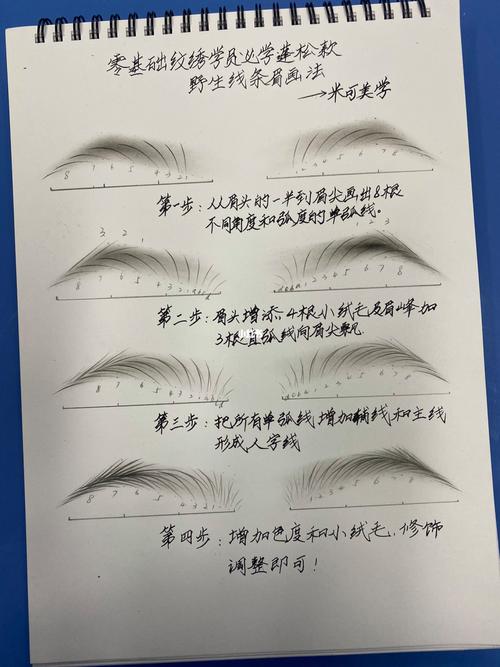 零基础纹绣学员必学蓬松款
野生线条眉画法
→米可美学
8 7 6 5 4 3 2 1
1 2 3 4 5 6 7 8
第一步：从眉头的一半到眉尖画出8根
不同角度和弧度的单弧线。
3 2 1
8 7 6 5 4 3 2 1
1 2 3 4 5 6 7 8
第二步：眉头增添，4根小绒毛及眉峰加
3根直弧线向眉尖
小红书
8 7 6 5 4 3 2 1
1 2 3 4 5 6 7 8
第三步：把所有单弧线增加辅线和主线
形成人字线
8 7 6 5 4 3 2 1
1 2 3 4 5 6 7 8
第四步：增加色度和小绒毛，修饰
调整即可！